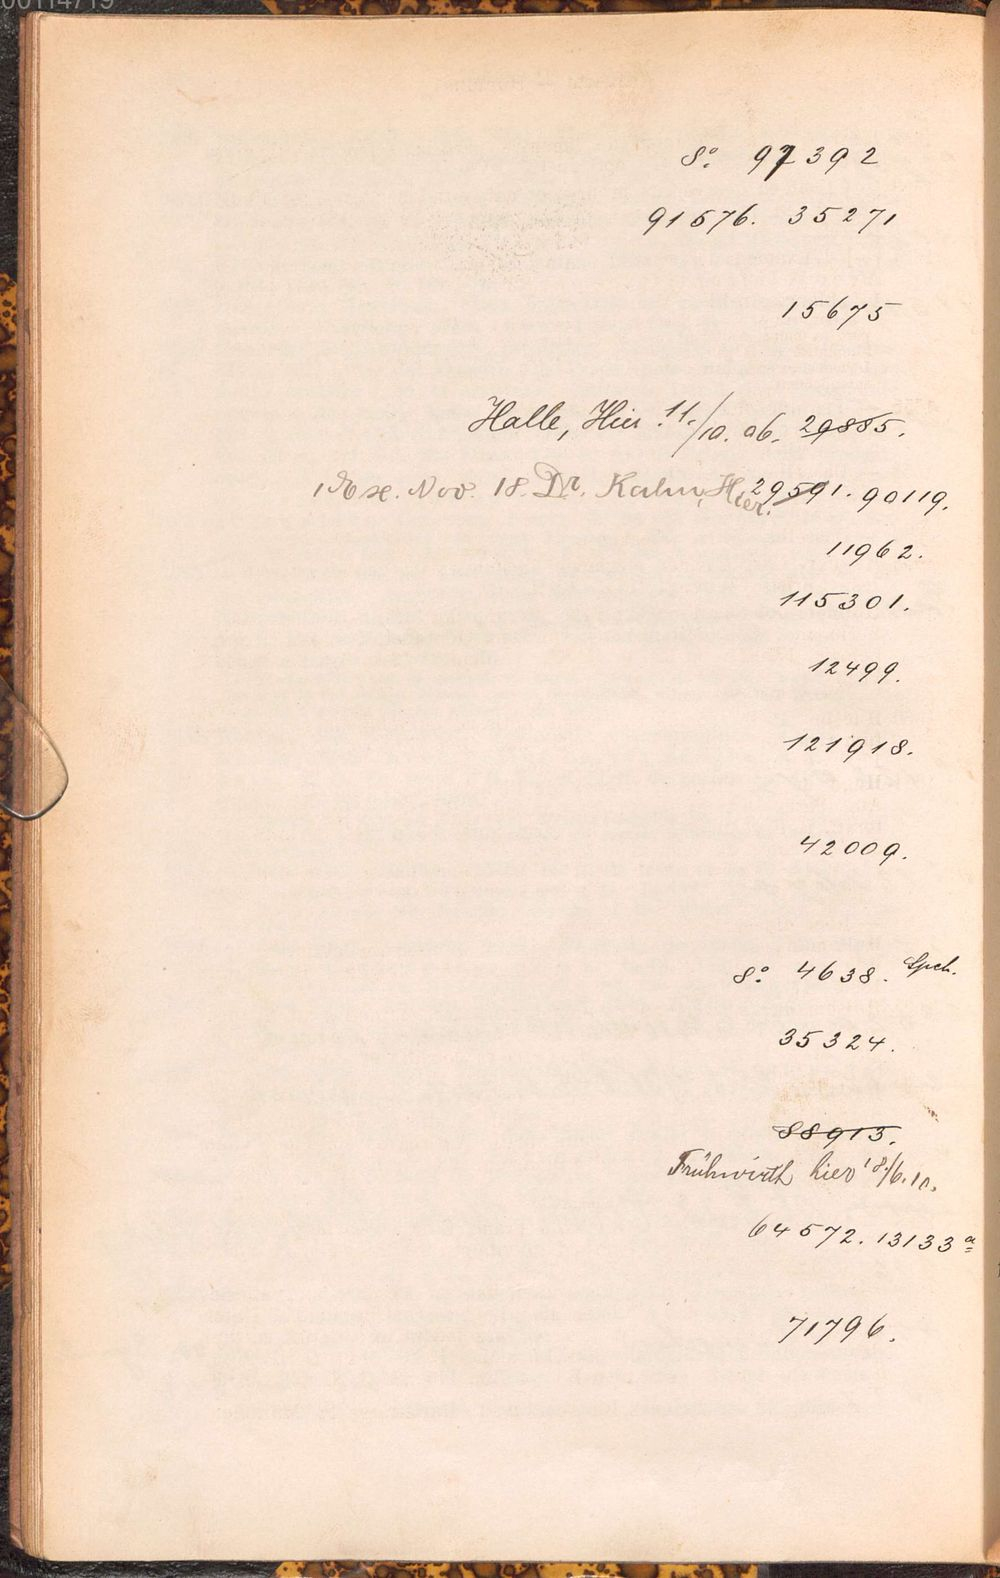 00114719
8°. 97392
91576. 35271
15675
Halle, Hier 11./10. 06. 29885.
1 Ex. Nov. 18. Dr. Kahn, Hier. 29591. 90119.
11962.
115301.
12499.
121918.
42009.
8°. 4638.
35324.
88913.
Frühwirth hier 18/6. 10.
64572. 13133 a
71796.